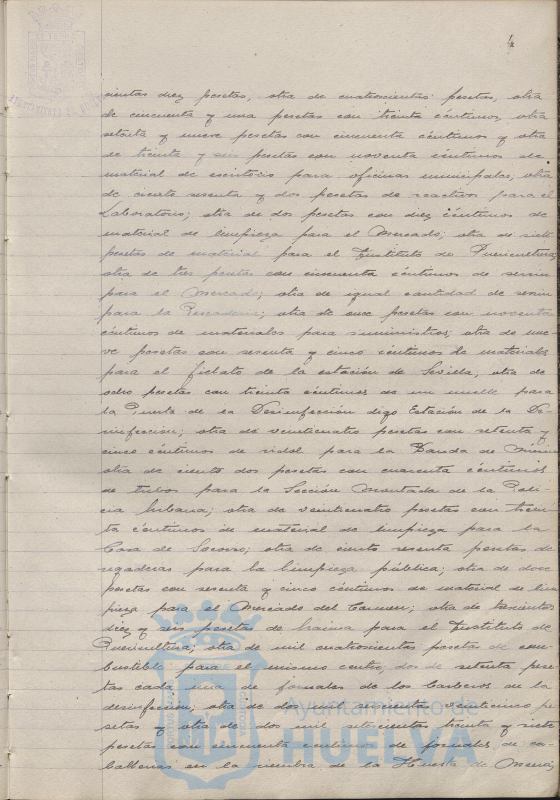 4
cientas diez pesetas, otra de cuatrocientas pesetas, otra
de cincuenta y una pesetas con treinta céntimos, otra
setenta y nueve pesetas con cincuenta céntimos y otra
de treinta y seis pesetas con noventa céntimos de
material de escritorio para oficinas municipales; otra
de ciento sesenta y dos pesetas de reactivos para el
Laboratorio; otra de dos pesetas con diez céntimos de
material de limpieza para el Mercado; otra de siete
pesetas de material para el Instituto de Puericultura;
otra de tres pesetas con cincuenta céntimos de serrin
para el Mercado; otra de igual cantidad de serrin
para la Pescaderia; otra de once pesetas con noventa
céntimos de materiales para suministros; otra de nue-
ve pesetas con sesenta y cinco céntimos de materiales
para el fielato de la estación de Sevilla; otra de
ocho pesetas con treinta céntimos de un muelle para
la Puerta de la Desinfección digo Estación de la De-
sinfección; otra de veinticuatro pesetas con setenta y
cinco céntimos de para la Banda de Música
otra de ciento dos pesetas con cuarenta céntimos
de tubos para la Sección Montada de la Poli-
cia Urbana; otra de veinticuatro pesetas con trein-
ta céntimos de material de limpieza para la
Casa de Socorro; otra de ciento sesenta pesetas de
regaderas para la limpieza pública; otra de doce
pesetas con sesenta y cinco céntimos de material de lim-
pieza para el Mercado del Carmen; otra de trescientas
diez y seis pesetas de harina para el Instituto de
Puericultura; otra de mil cuatrocientas pesetas de com-
bustible para el mismo centro; dos de setenta pese-
tas cada una de jornales de los barberos en la
desinfección; otra de dos mil setenta y veinticinco pe-
setas y otra de dos mil setecientas treinta y siete
pesetas con cincuenta céntimos de jornales de ca-
ballerias en la siembra de la Huerta de Mena;
Ayuntamiento de
HUELVA